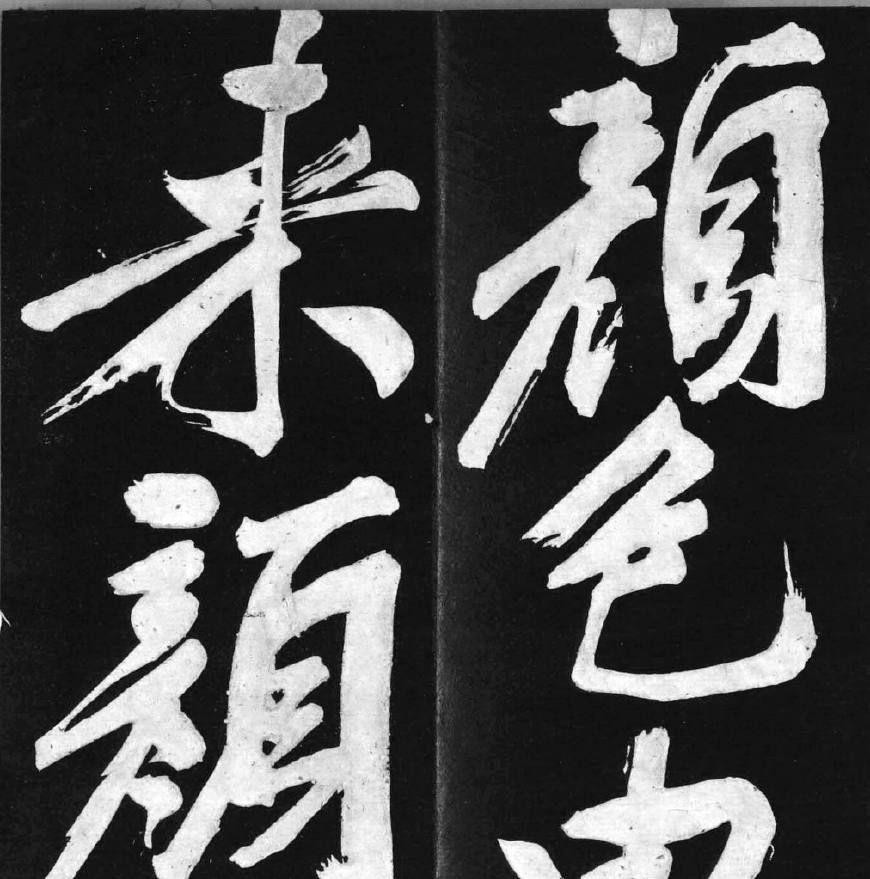 顏色由
来顏